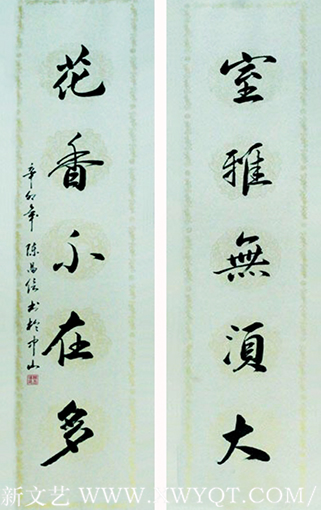 室雅無須大
花香不在多
辛卯年 陈昌信书於中山
新文艺 WWW.XWYQT.COM/